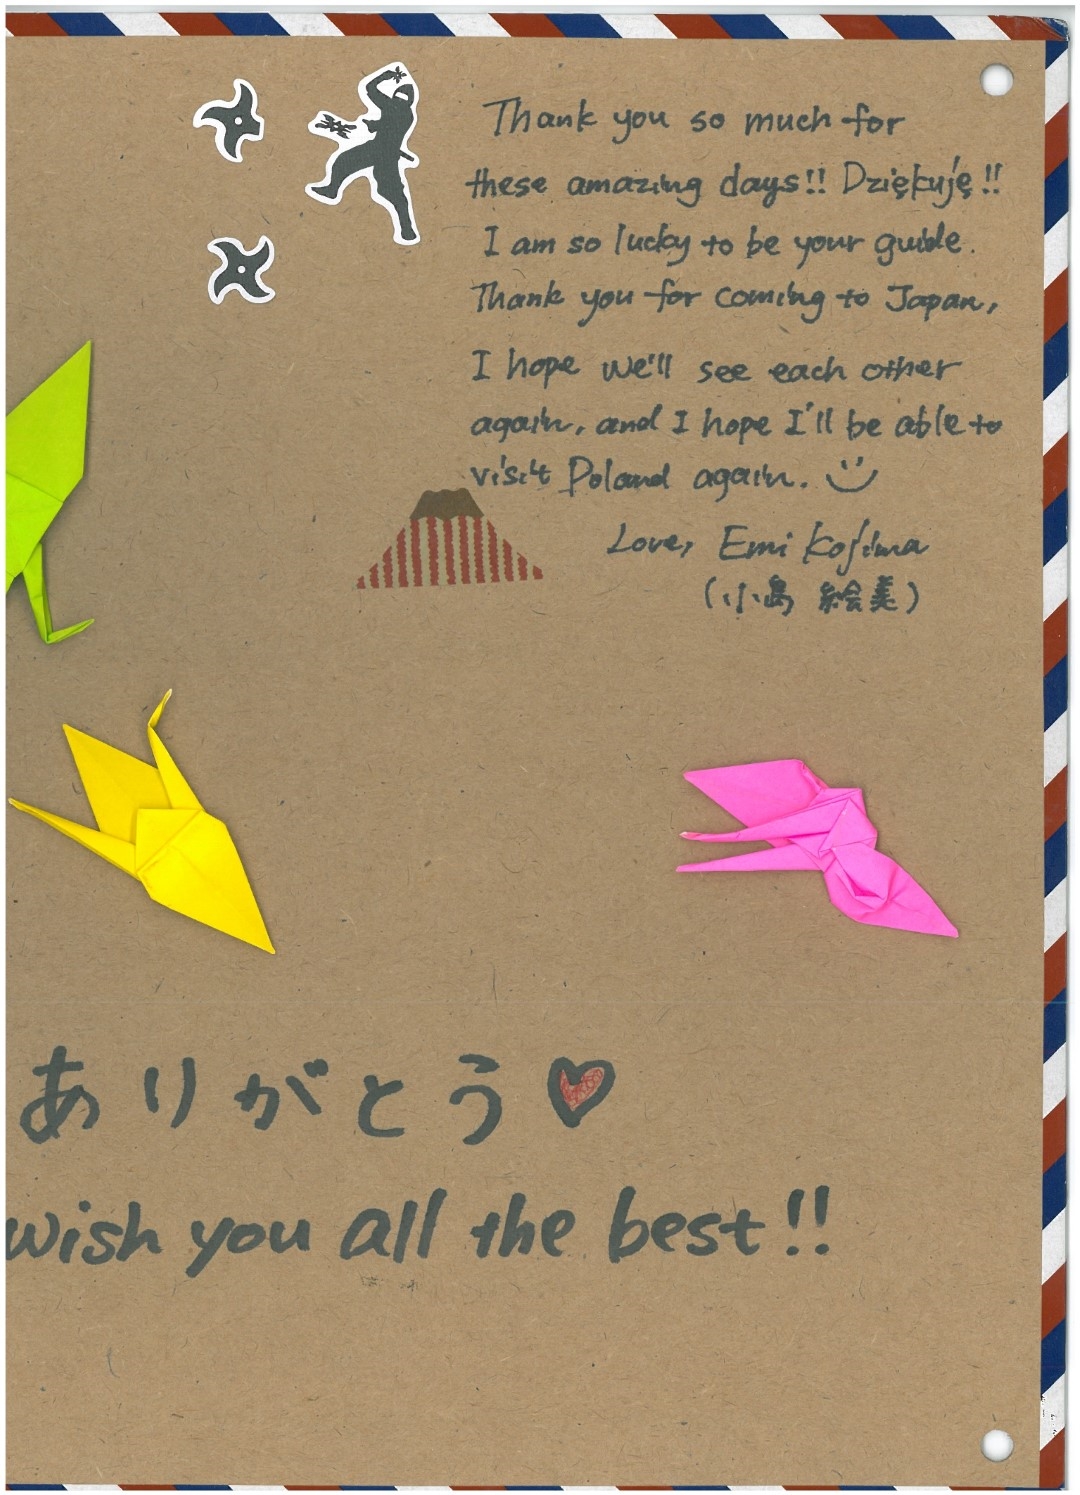 Thank you so much for
these amazing days!! Dziękuję!!
I am so lucky to be your guide.
Thank you for coming to Japan,
I hope we'll see each other
again, and I hope I'll be able to
visit Poland again.
Love, Emi Kojima
(小島 絵美)
ありがとう♡
wish you all the best!!